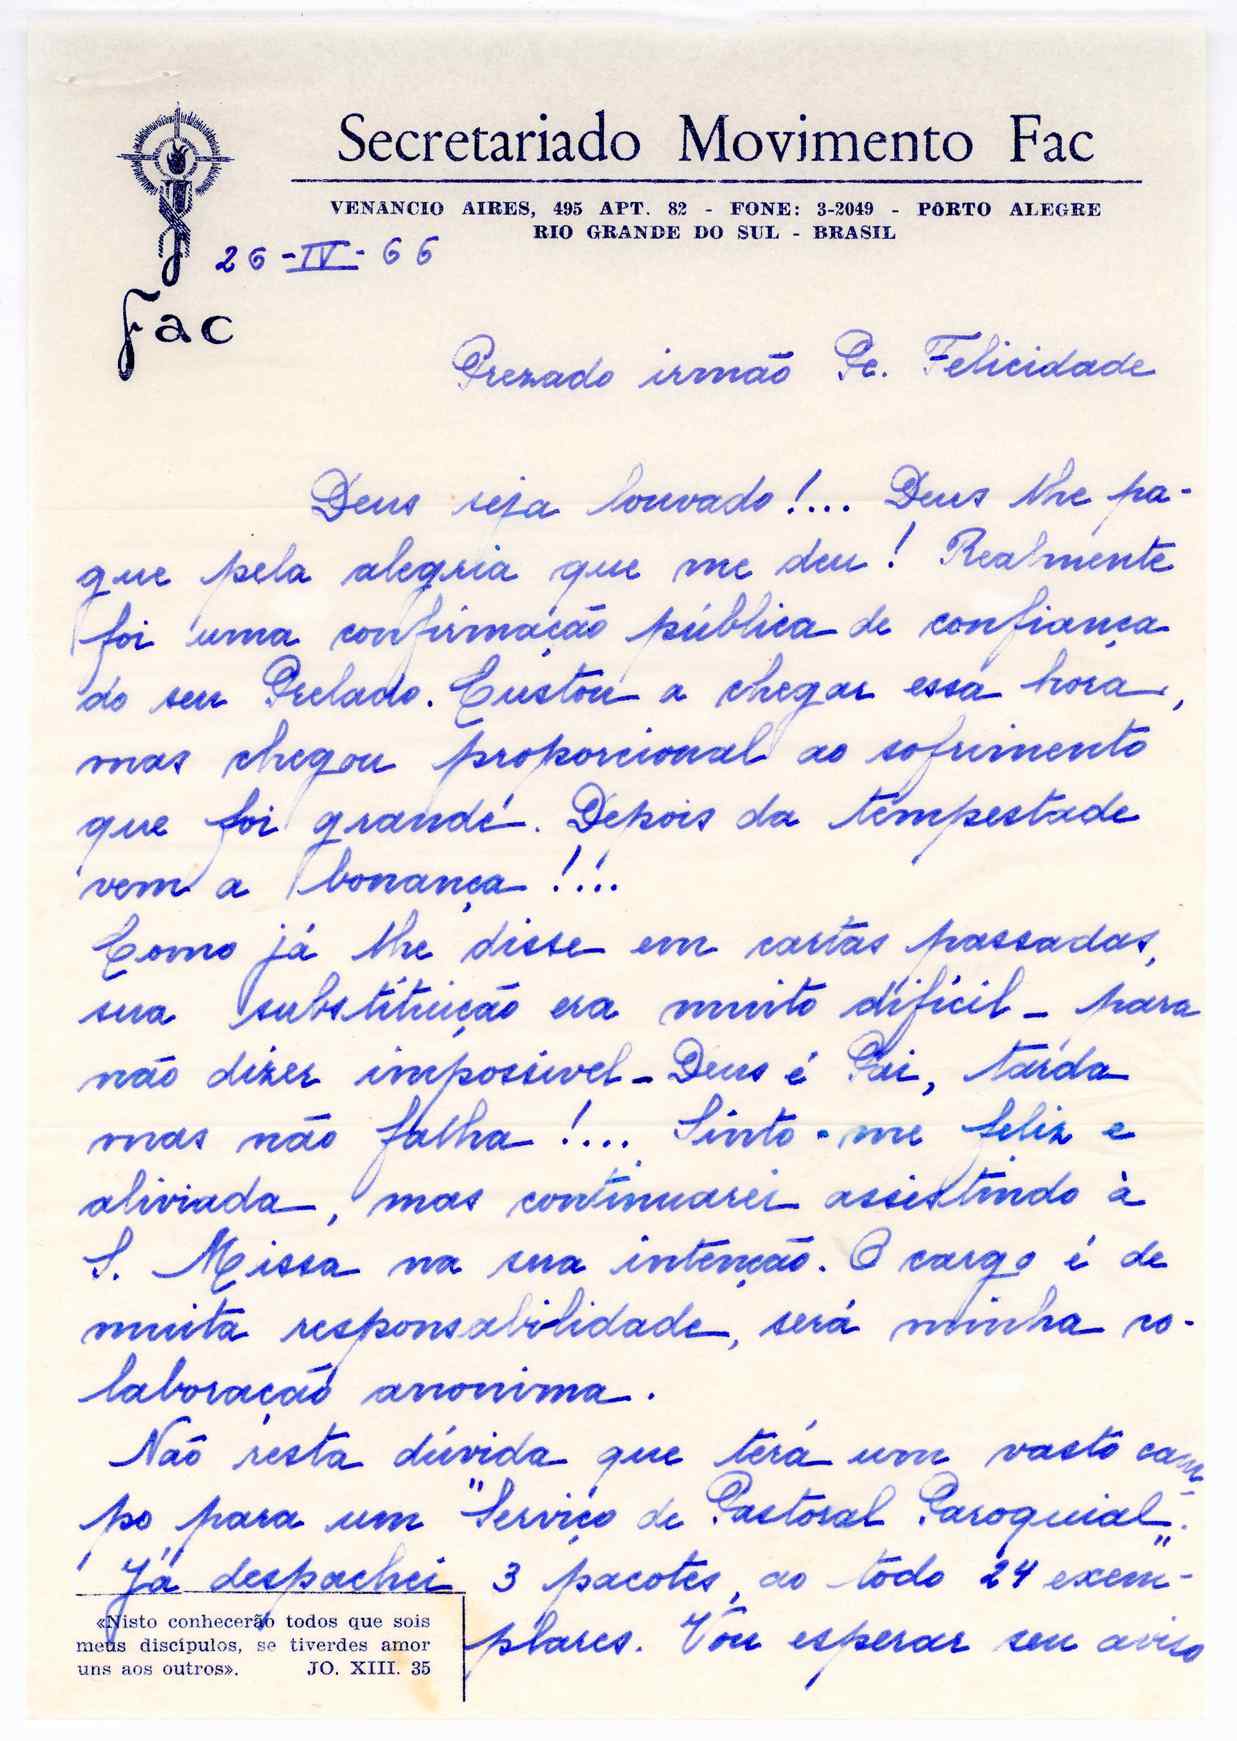 Secretariado Movimento Fac
VENANCIO AIRES, 495 APT. 82 - FONE: 3-2049 - PORTO ALEGRE
RIO GRANDE DO SUL - BRASIL
26-IV-66
Fac
Prezado irmão Pe. Felicidade
Deus seja louvado!... Deus lhe pa-
gue pela alegria que me deu! Realmente
foi uma confirmação pública de confiança
do seu Prelado. Custou a chegar essa hora,
mas chegou proporcional ao sofrimento
que foi grande. Depois da tempestade
vem a bonança!...
Como já lhe disse em cartas passadas,
sua substituição era muito difícil - para
não dizer impossível - Deus é Pai, tarda
mas não falha!... Sinto-me feliz e
aliviada, mas continuarei assistindo à
S. Missa na sua intenção. O cargo é de
muita responsabilidade, será minha co-
laboração anonima.
Não resta dúvida que terá um vasto cam-
po para um "Serviço de Pastoral Paroquial".
Já despachei 3 pacotes, ao todo 24 exem-
plares. Vou esperar seu aviso
«Nisto conhecerão todos que sois
meus discípulos, se tiverdes amor
uns aos outros». JO. XIII. 35